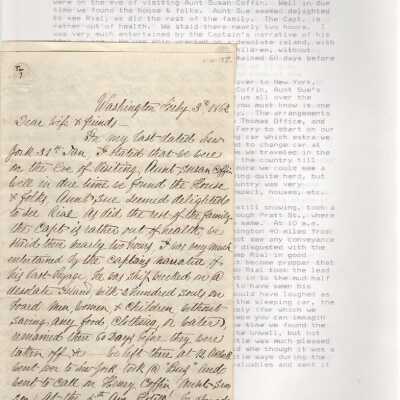 were on the eve of visiting Aunt Susan Coffin. Well in due
time we found the house & folks. Aunt Sue seemed delighted
to see Rial, as did the rest of the family. The Capt. is
rather out of health. We staid there nearly two hours. I
was very much entertained by the Captain's narrative of his
on a desolate island, with
children, without
remained 60 days before
over to New York,
Coffin, Aunt Sue's
us all over the
you must know is one
The arrangements
Thomas Office, and
Ferry to start on our
car which extra we
to change car at
we traveled in the
the country till
more we could see a
ing quite hard, but
untry was very
houses, etc.
still snowing, took a
ough Pratt St., where
same. At 10 a.m.
ington 40 miles from
not see any conveyance
disgusted with the
Rial in good
become proper that
Rial took the lead
in to the mud half
to have seen his
would have laughed as
the sleeping car, the
ly (for which we
we you can imagine
time we found the
unwell, but not
tle was much pleased
and whe though it was a
tle ways during the
valuables and sent it
Washington Feby 3d 1862
Dear Wife & friends
In my last dated New
York 31st Jan. I stated that we were
on the Eve of Visiting Aunt Susan Coffin
Well in due time we found the House
& folks. Aunt Sue seemed delighted
to see Rial, as did the rest of the family
the Capt is rather out of health, we
staid there nearly two hours. It was very much
entertained by the Captains narrative of
his last voyage he was Ship wrecked on a
desolate Island with a hundred souls on
board Men, Women, & Children without
saving any food, Clothing, or water,
remained there 60 days before they were
taken off &c we left there at
went over to New York took a "Buss" and
went to call on Henry Coffin Aunt Sues
son, at the 5th Ave Hotel